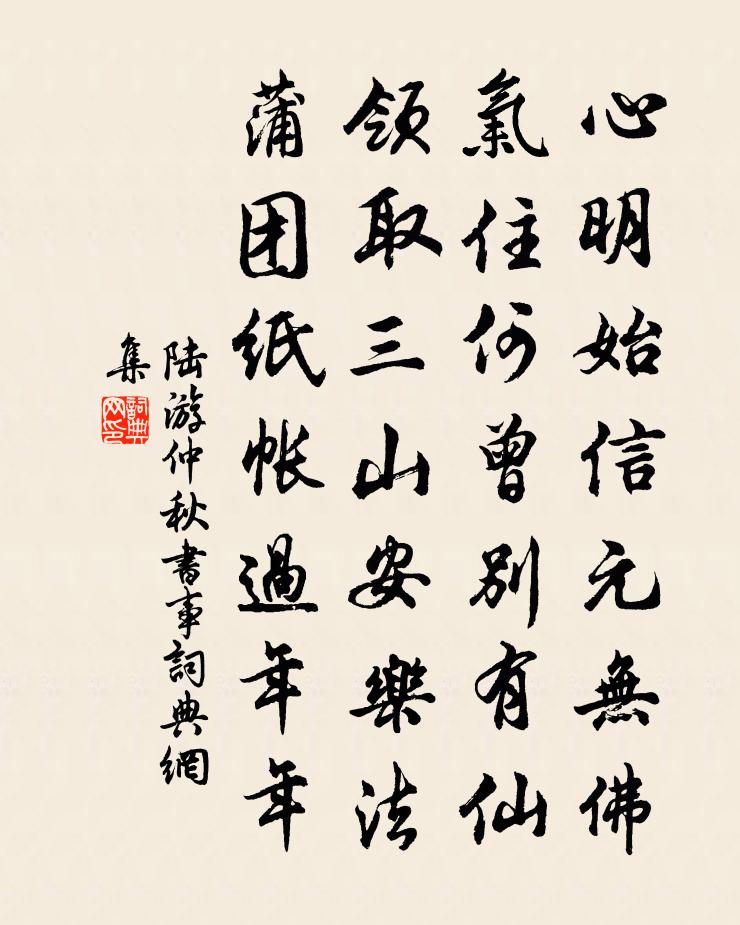 心明始信元無佛
氣住何曾別有仙
領取三山安樂法
蒲团紙帳過年年
陆游仲秋書事詞典網
集
詞典
网印